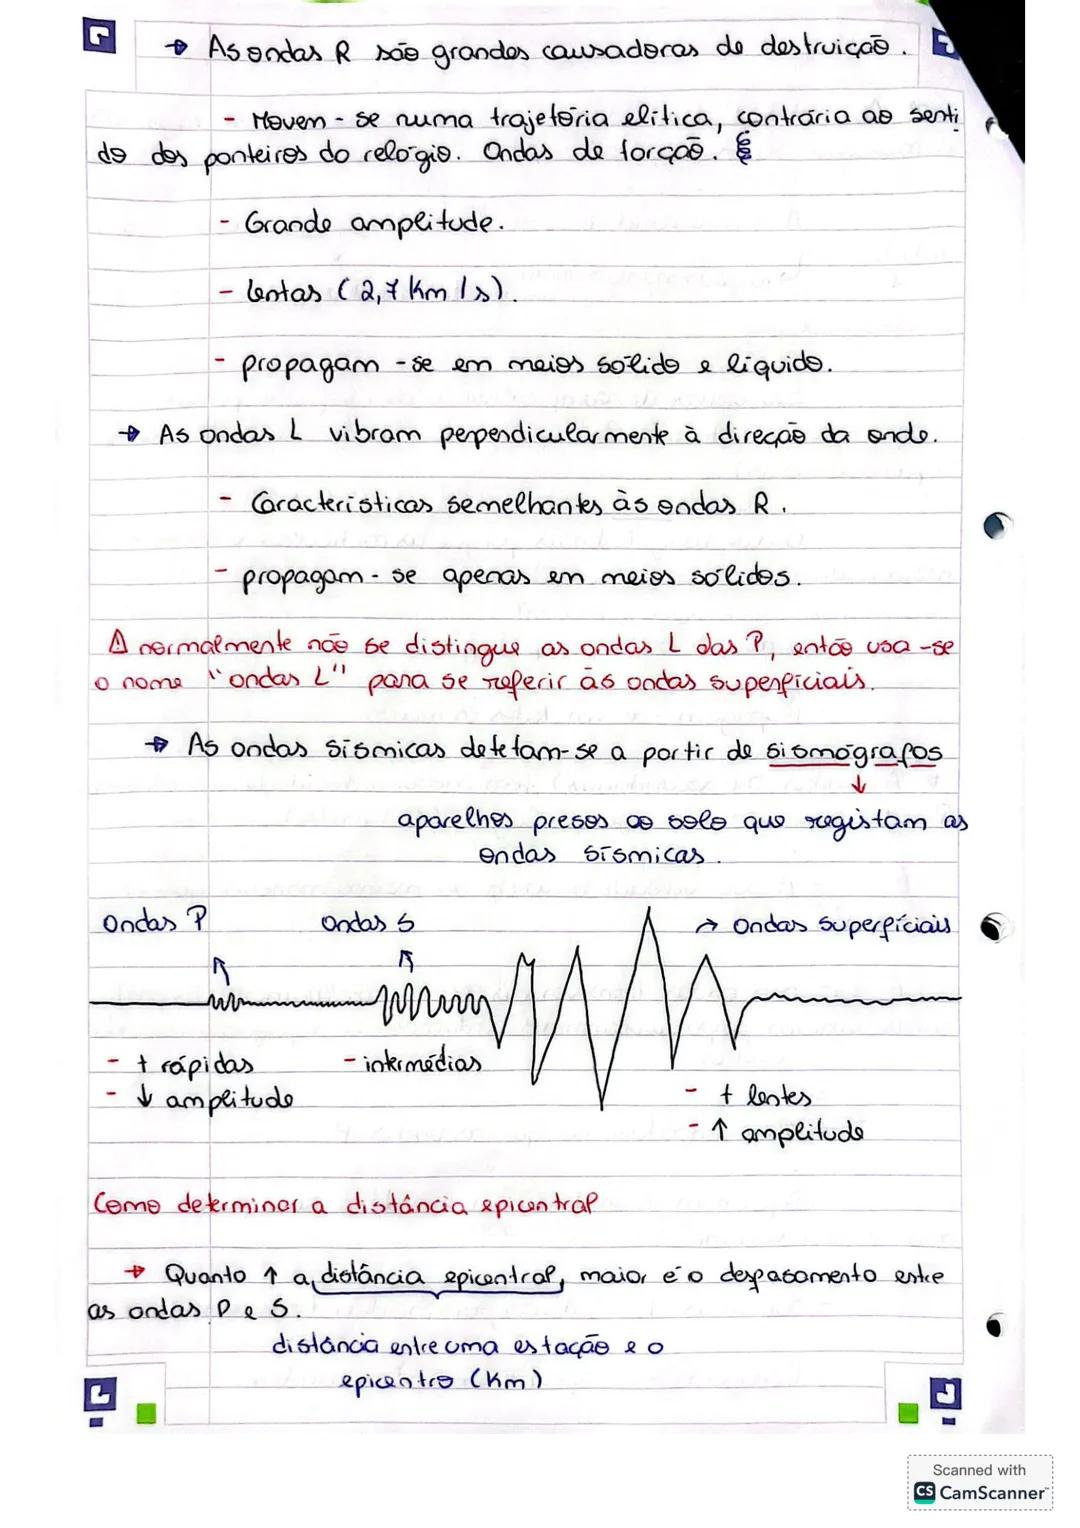 → As ondas R são grandes causadoras de destruição.
- Movem-se numa trajetória elítica, contrária ao senti
do dos ponteiros do relógio. Ondas de torção.
- Grande amplitude.
- lentas (2,7 Km/s).
- propagam-se em meios sólido e líquido.
→ As ondas L vibram perpendicularmente à direção da onda.
- Características semelhantes às ondas R.
- propagam-se apenas em meios sólidos.
⚠ normalmente não se distingue as ondas L das P, então usa-se
o nome "ondas L" para se referir às ondas superficiais.
→ As ondas sísmicas detetam-se a partir de sismógrafos
↓
aparelhos presos ao solo que registam as
ondas sísmicas.
Ondas P ondas S → Ondas superficiais
- + rápidas - intermédias
- ↓ amplitude - + lentes
- ↑ amplitude
Como determinar a distância epicentral
→ Quanto ↑ a distância epicentral, maior é o desfasamento entre
as ondas P e S.
distância entre uma estação e o
epicentro (Km)
Scanned with
CS CamScanner